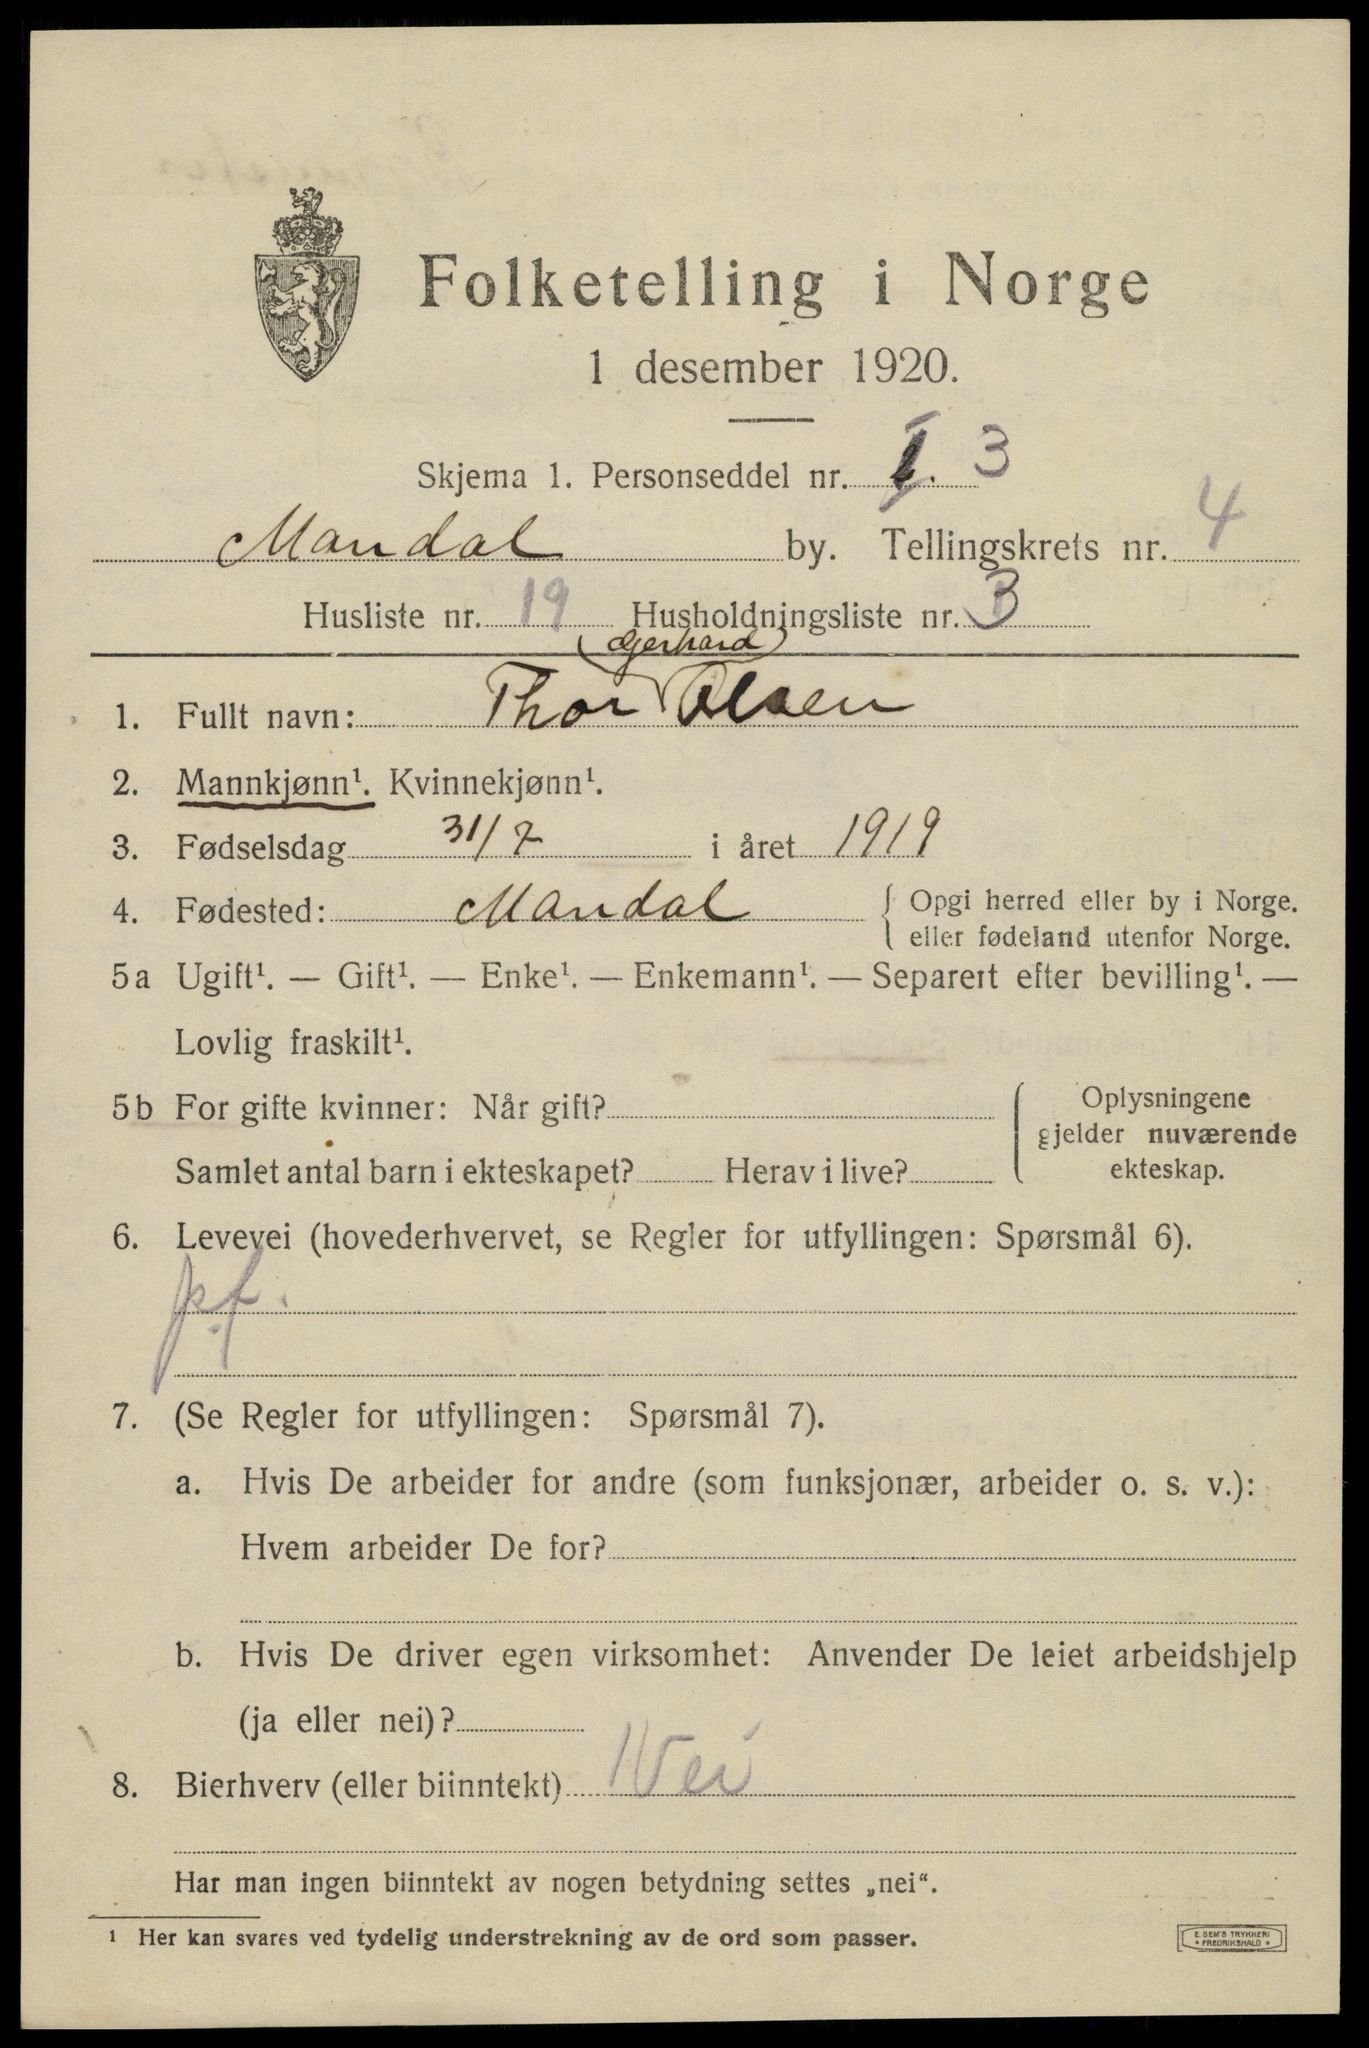 Folketelling i Norge
1 desember 1920.
Skjema 1. Personseddel nr. 3
Mandal by. Tellingskrets nr. 4
Husliste nr. 19 Husholdningsliste nr. B
(Gjerhard)
1. Fullt navn: Thor Olsen
2. Mannkjønn¹. Kvinnekjønn¹.
3. Fødselsdag 31/7 i året 1919
4. Fødested: Mandal { Opgi herred eller by i Norge.
eller fødeland utenfor Norge.
5a Ugift¹. — Gift¹. — Enke¹. — Enkemann¹. — Separert efter bevilling¹. —
Lovlig fraskilt¹.
5b For gifte kvinner: Når gift?
Samlet antal barn i ekteskapet? Herav i live?
Oplysningene
gjelder nuværende
ekteskap.
6. Levevei (hovederhvervet, se Regler for utfyllingen: Spørsmål 6).
p.f.
7. (Se Regler for utfyllingen: Spørsmål 7).
a. Hvis De arbeider for andre (som funksjonær, arbeider o. s. v.):
Hvem arbeider De for?
b. Hvis De driver egen virksomhet: Anvender De leiet arbeidshjelp
(ja eller nei)?
8. Bierhverv (eller biinntekt) Nei
Har man ingen biinntekt av nogen betydning settes „nei“.
¹ Her kan svares ved tydelig understrekning av de ord som passer.
E. SEM'S TRYKKERI
* FREDRIKSHALD *